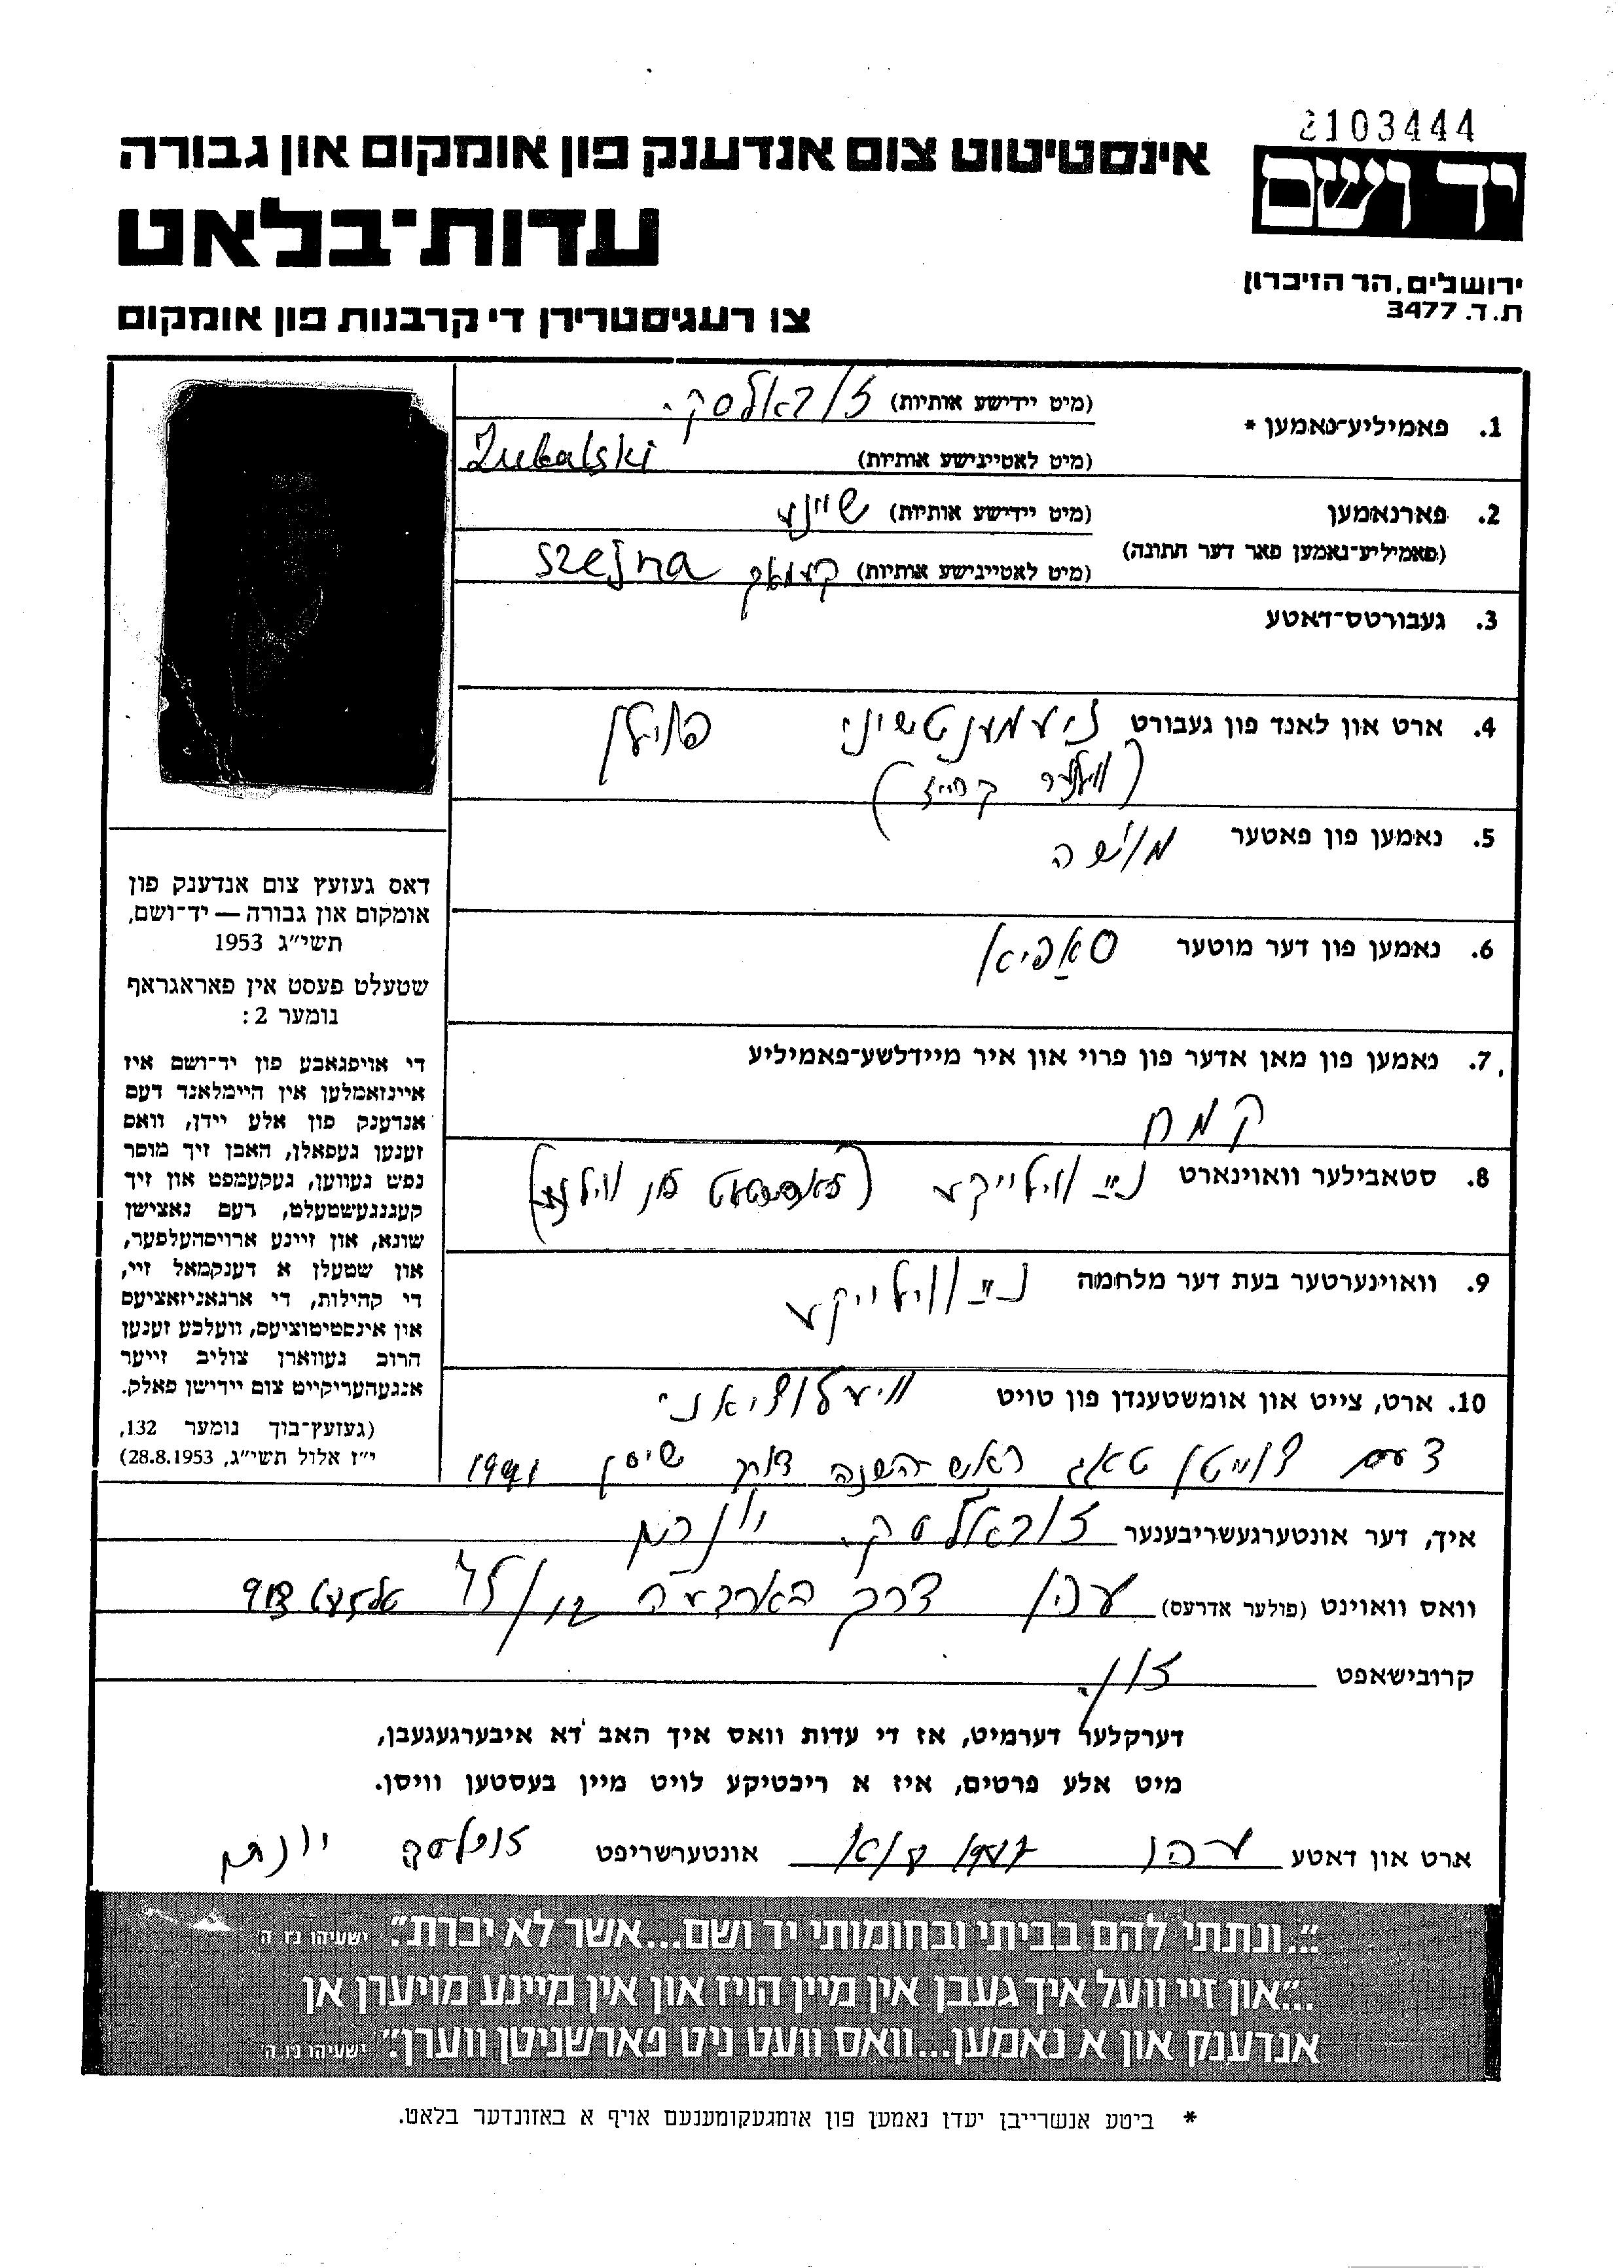 2103444
יד ושם
ירושלים, הר הזיכרון
ת.ד. 3477
אינסטיטוט צום אנדענק פון אומקום און גבורה
עדות־בלאט
צו רעגיסטרירן די קרבנות פון אומקום
1. פאמיליע־נאמען * (מיט יידישע אותיות) זובאלסקי
(מיט לאטייניшע אותיות) Zubalski
2. פארנאמען (מיט יידישע אותיות) שיינע
(פאמיליע־נאמען פאר דער חתונה) (מיט לאטיינישע אותיות) Szejna
3. געבורטס־דאטע
4. ארט און לאנד פון געבורט ניעמענטשיני פוילן
(ווילנער קרייז)
5. נאמען פון פאטער מוישה
6. נאמען פון דער מוטער סאפיא
7. נאמען פון מאן אדער פון פרוי און איר מיידלשע־פאמיליע
קמח
8. סטאבילער וואוינארט נײַ ווילייקע
9. וואוינערטער בעת דער מלחמה נײַ ווילייקע
10. ארט, צייט און אומשטענדן פון טויט
דעם צווייטן טאג ראש השנה דורך שיסן 1941
דאס געזעץ צום אנדענק פון
אומקום און גבורה — יד־ושם,
תשי״ג 1953
שטעלט פעסט אין פאראגראף
נומער 2:
די אויפגאבע פון יד־ושם איז
איינזאמלען אין היימלאנד דעם
אנדענק פון אלע יידן, וואס
זענען געפאלן, האבן זיך מוסר
נפש געווען, געקעמפט און זיך
קעגנגעשטעלט, דעם נאצישן
שונא, און זיינע ארויסהעלפער,
און שטעלן א דענקמאל זיי,
די קהילות, די ארגאניזאציעס
און אינסטיטוציעס, וועלכע זענען
חרוב געווארן צוליב זייער
אנגעהעריקייט צום יידישן פאלק.
(געזעץ־בוך נומער 132,
י״ז אלול תשי״ג, 28.8.1953)
איך, דער אונטערגעשריבענער זובאלסקי יונתן
וואס וואוינט (פולער אדרעס) עכו דרך הארבעה
קרובישאפט זון
דערקלער דערמיט, אז די עדות וואס איך האב דא איבערגעגעבן,
מיט אלע פרטים, איז א ריכטיקע לויט מיין בעסטען וויסן.
ארט און דאטע עכו אונטערשריפט זובלסקי יונתן
״...ונתתי להם בביתי ובחומותי יד ושם...אשר לא יכרת״. ישעיהו נו ה
״...און זיי וועל איך געבן אין מיין הויז און אין מיינע מויערן אן
אנדענק און א נאמען...וואס וועט ניט פארשניטן ווערן״. ישעיהו נו ה
* ביטע אנשרייבן יעדן נאמען פון אומגעקומענעם אויף א באזונדער בלאט.